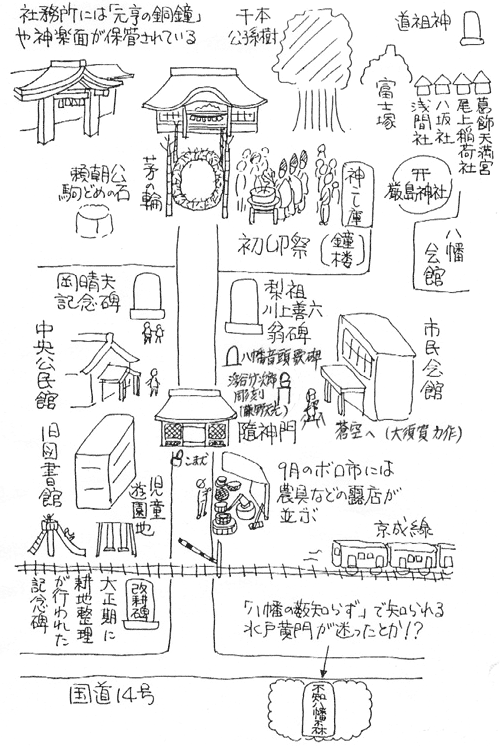 社務所には「元亨の銅鐘」
や神楽面が保管されている
千本
公孫樹
道祖神
富士塚
浅間社
八坂社
尾上稲荷社
葛飾天満宮
頼朝公
駒どめの石
茅の輪
神こし庫
(鐘楼)
厳島神社
初卯祭
八幡
会館
岡晴夫
記念碑
梨祖
川上善六
翁碑
八幡音頭歌碑
彫刻
中央公民館
市民会館
随神門
蒼空へ(大須賀力作)
旧図書館
こまど
児童
遊園地
9月のボロ市には
農具などの露店が
並ぶ
京成線
大正期に
耕地整理
が行われた
記念碑
改耕碑
「八幡の藪知らず」で知られる
水戸黄門が迷ったとか!?
国道14号
不知八幡森